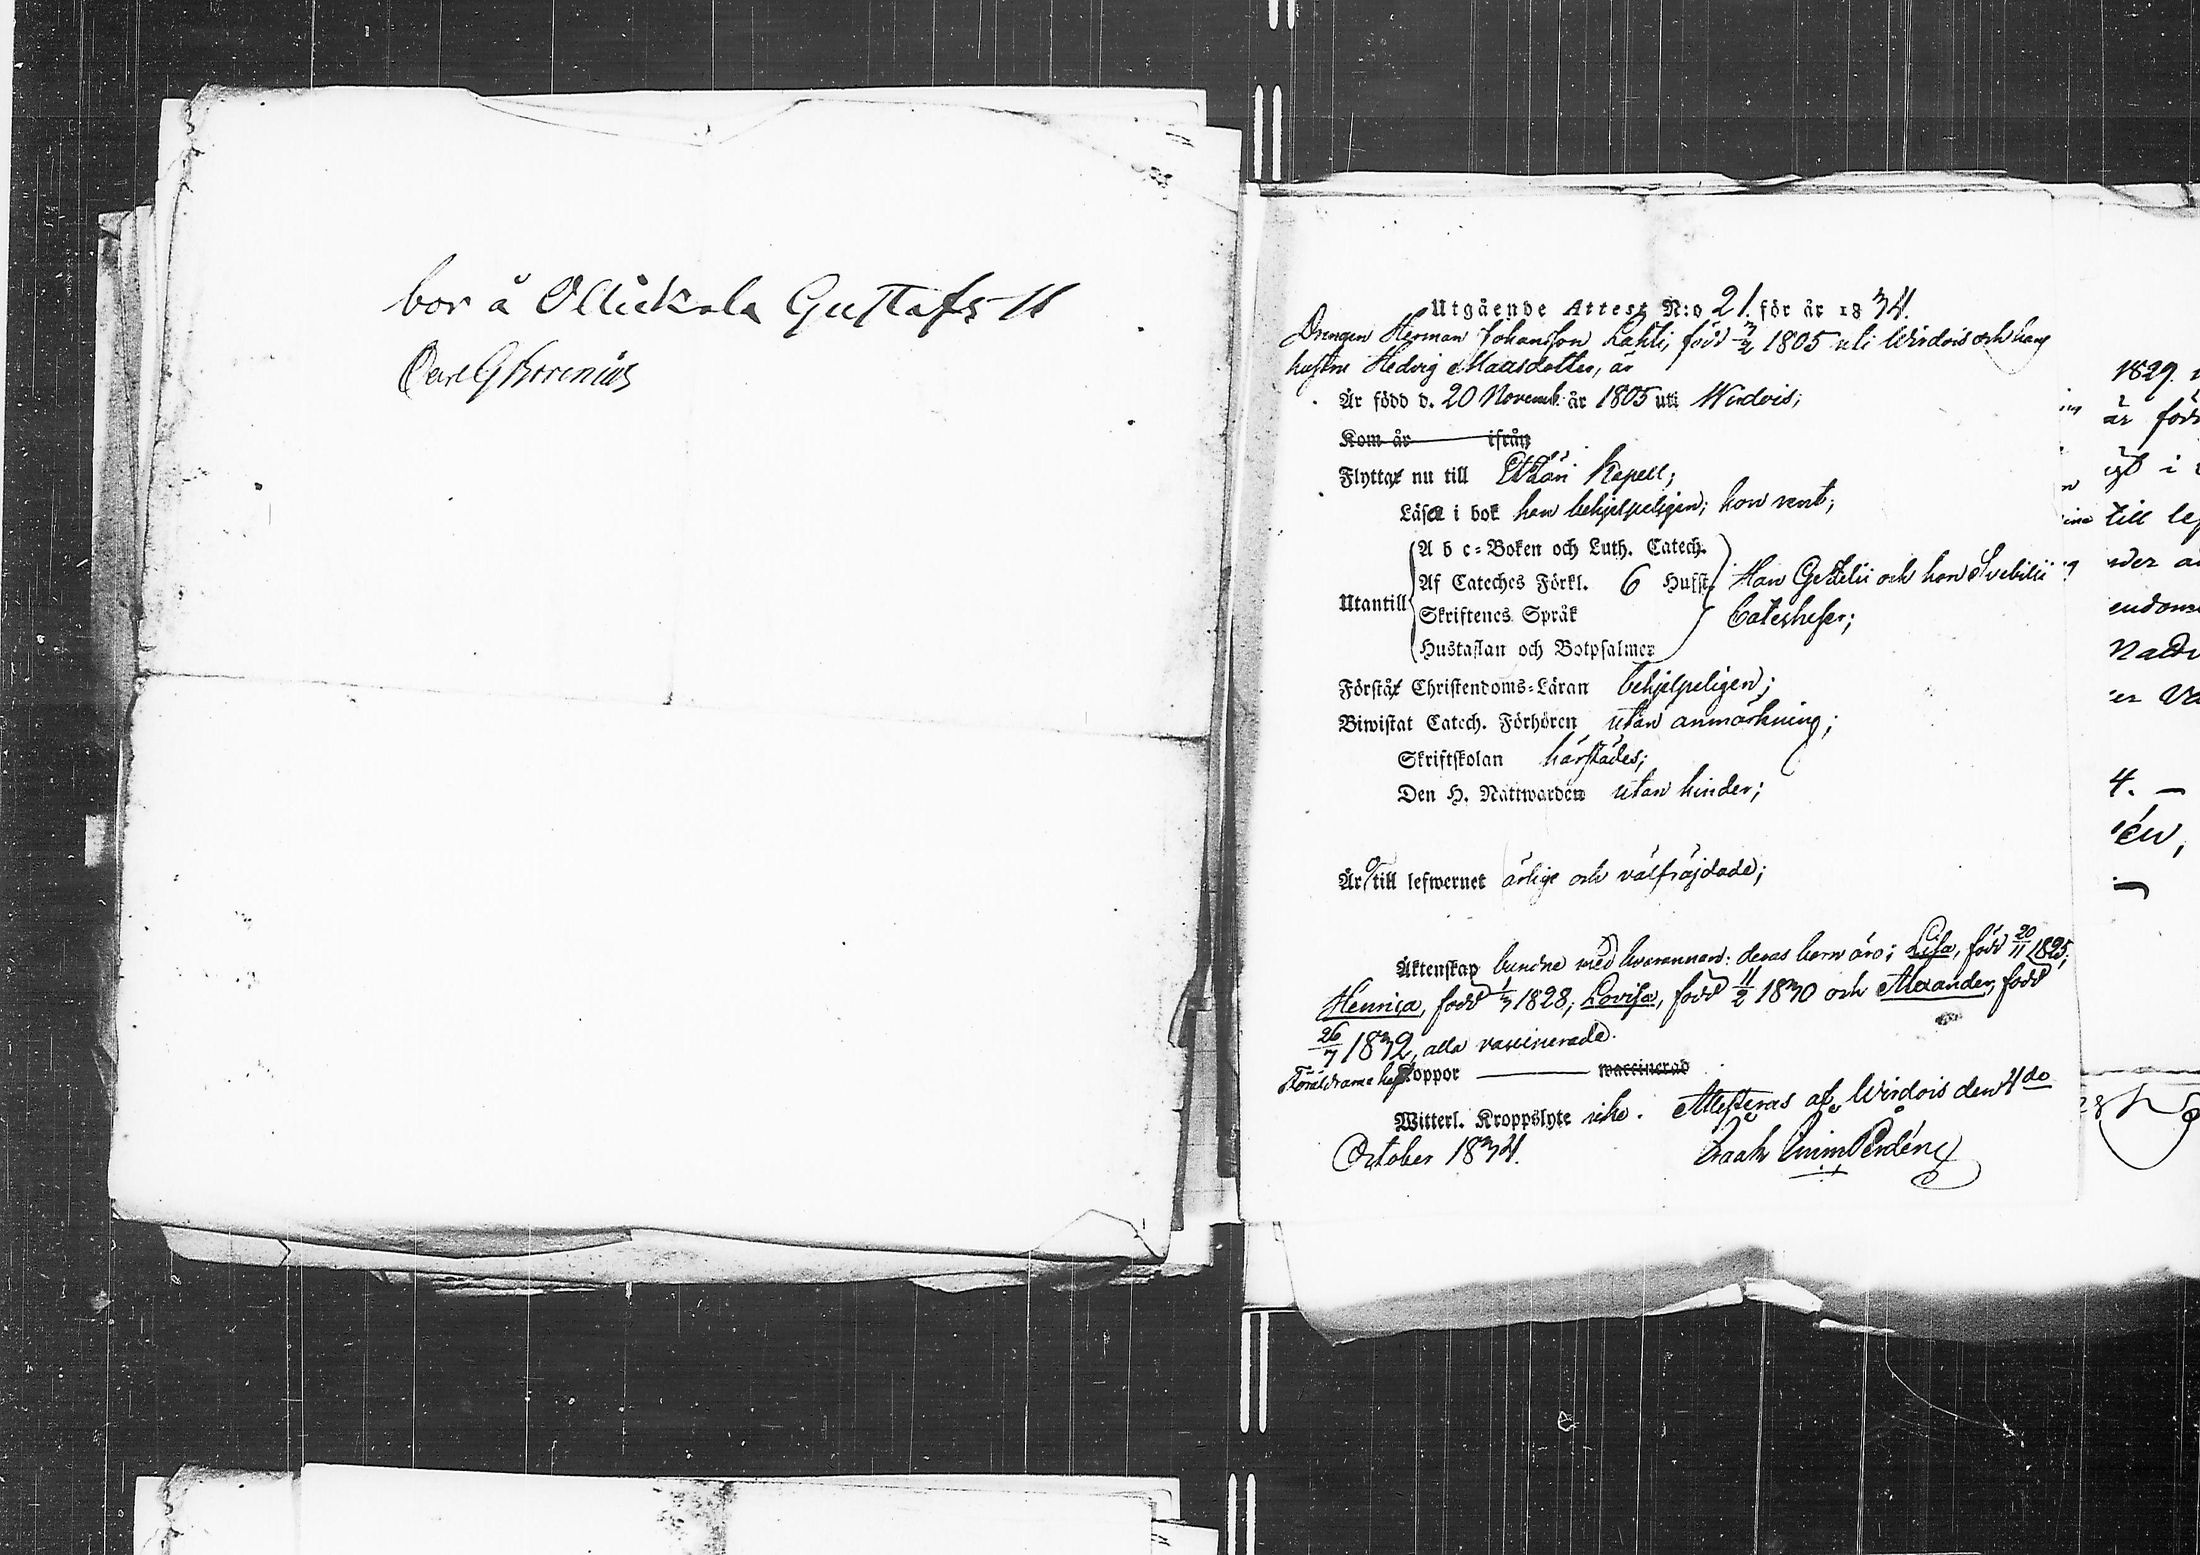 bor å Ollickala Gustafs H
Carl G Forenius
Utgående Attest N:o 21. för år 1834.
Drengen Herman Johansson Lahti, född 3/2 1805 uti Wirdois och hans
hustru Hedvig Maasdotter, är
Är född d. 20 Novemb. år 1805 uti Wirdois;
Kom år ifrån
Flyttar nu till Etzäri Kapell;
Läsa i bok han behjelpeligen; hon rent;
A b c-Boken och Luth. Catech.
Af Cateches Förkl. 6 Hufst. Han Gezelii och hon Svebilii
Utantill Skriftenes Språk Catecheser;
Hustaflan och Botpsalmer
Förstår Christendoms-Läran behjelpeligen;
Biwistat Catech. Förhören utan anmärkning;
Skriftskolan härstädes;
Den H. Nattwarden utan hinder;
Är till lefwernet ärlige och välfräjdade;
Äktenskap bundne med hvarannan: deras barn äro; Lisa, född 20/11 1825;
Henrica, född 1/3 1828; Lovisa, född 11/2 1830 och Alexander, född
26/7 1832, alla vaccinerade.
Föräldrarne haft Koppor waccinerad
Witterl. Kroppslyte icke. Attesteras af Wirdois den 4do
October 1834.
1829.
är född
i
till
4. —